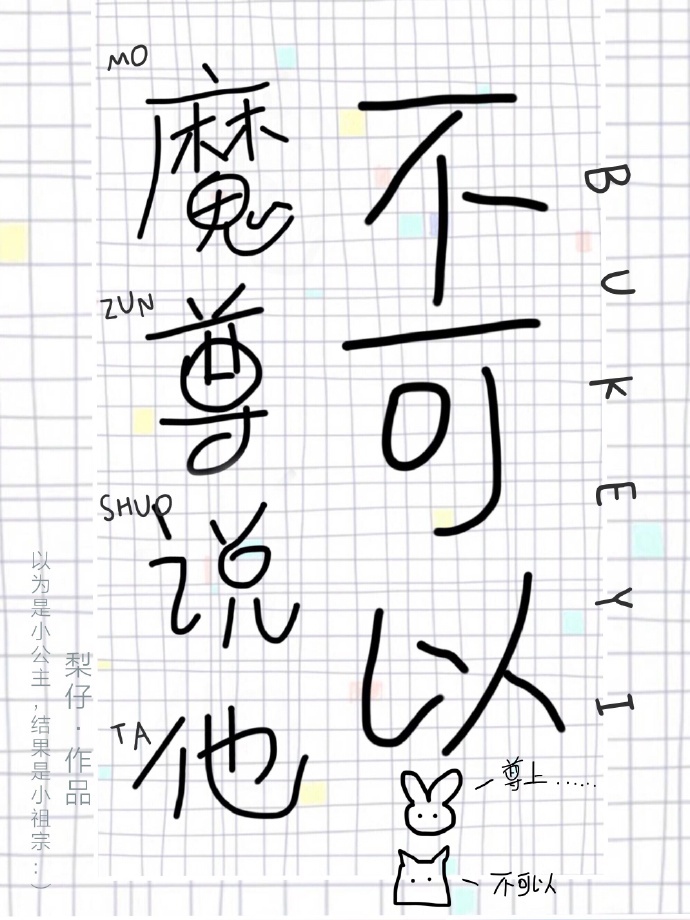 MO
魔
ZUN
尊
SHUO
说
TA
他
不可以
BUKEYI
以为是小公主，结果是小祖宗…）
梨仔·作品
尊上……
不可以